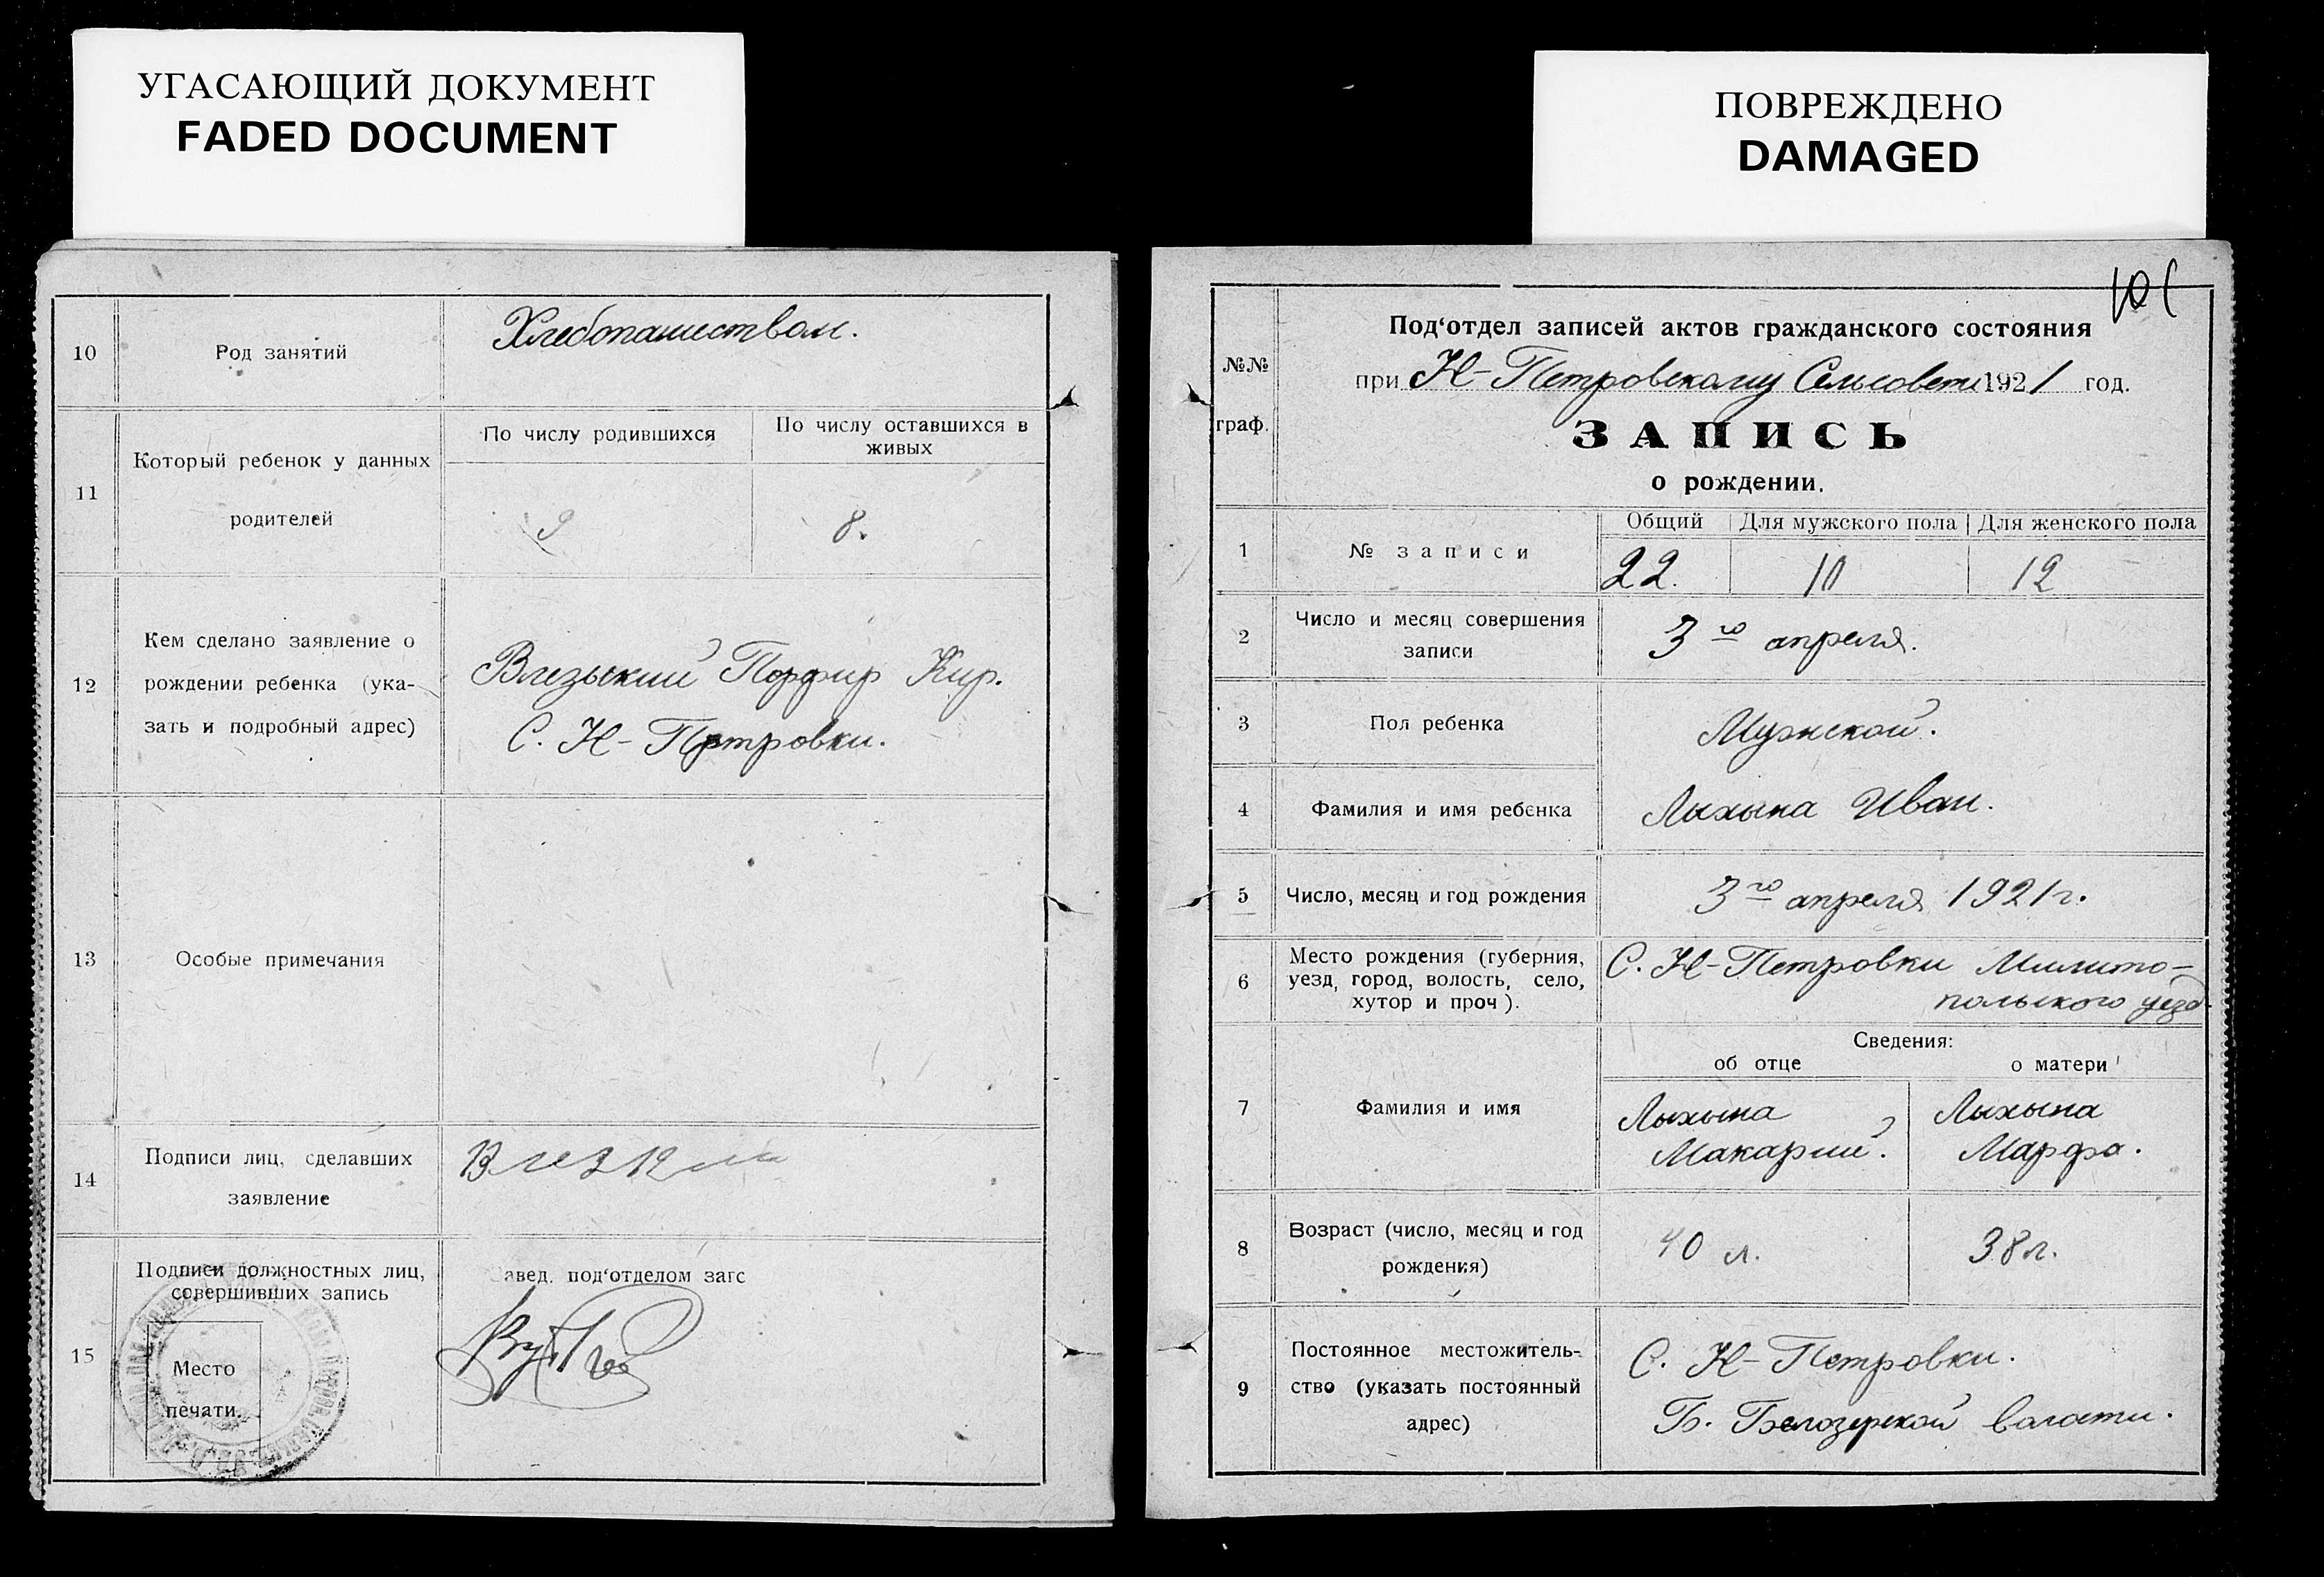 УГАСАЮЩИЙ ДОКУМЕНТ
FADED DOCUMENT
10
Род занятий
Хлебопашеством.
11
Который ребенок у данных
родителей
По числу родившихся
По числу оставшихся в
живых
9
8.
12
Кем сделано заявление о
рождении ребенка (ука-
зать и подробный адрес)
Влезький Порфир Кир.
С. Н-Петровки.
13
Особые примечания
14
Подписи лиц, сделавших
заявление
15
Подписи должностных лиц,
совершивших запись
Место
печати.
Завед. под‘отделом загс
ПОВРЕЖДЕНО
DAMAGED
101
№№
граф.
Под‘отдел записей актов гражданского состояния
при Н-Петровскому Сельсовети 1921 год.
ЗАПИСЬ
о рождении.
1
№ записи
Общий
Для мужского пола
Для женского пола
22.
10
12
2
Число и месяц совершения
записи
3го апреля.
3
Пол ребенка
Мужской.
4
Фамилия и имя ребенка
Лыхына Иван.
5
Число, месяц и год рождения
3го апреля 1921 г.
6
Место рождения (губерния,
уезд, город, волость, село,
хутор и проч).
С. Н-Петровки Милито-
польского уезд.
7
Фамилия и имя
Сведения:
об отце
о матери
Лыхына
Макарий.
Лыхына
Марфа.
8
Возраст (число, месяц и год
рождения)
40 л.
38 л.
9
Постоянное местожитель-
ство (указать постоянный
адрес)
С. Н-Петровки.
Б. Белозерской волости.